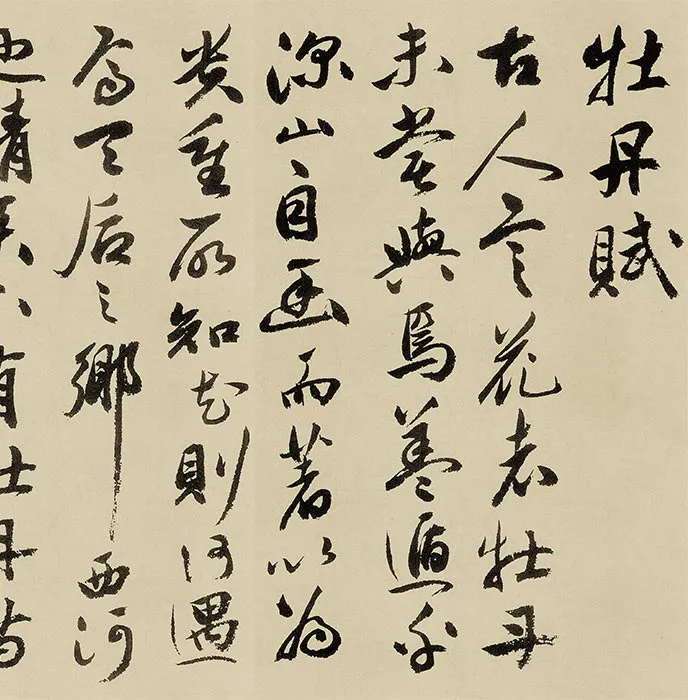 牡丹賦
古人言花者牡丹
未嘗與焉蓋遁於
深山自幽而著以為
貴重所知花則何遇
焉天后之鄉西河
也精舍下有牡丹